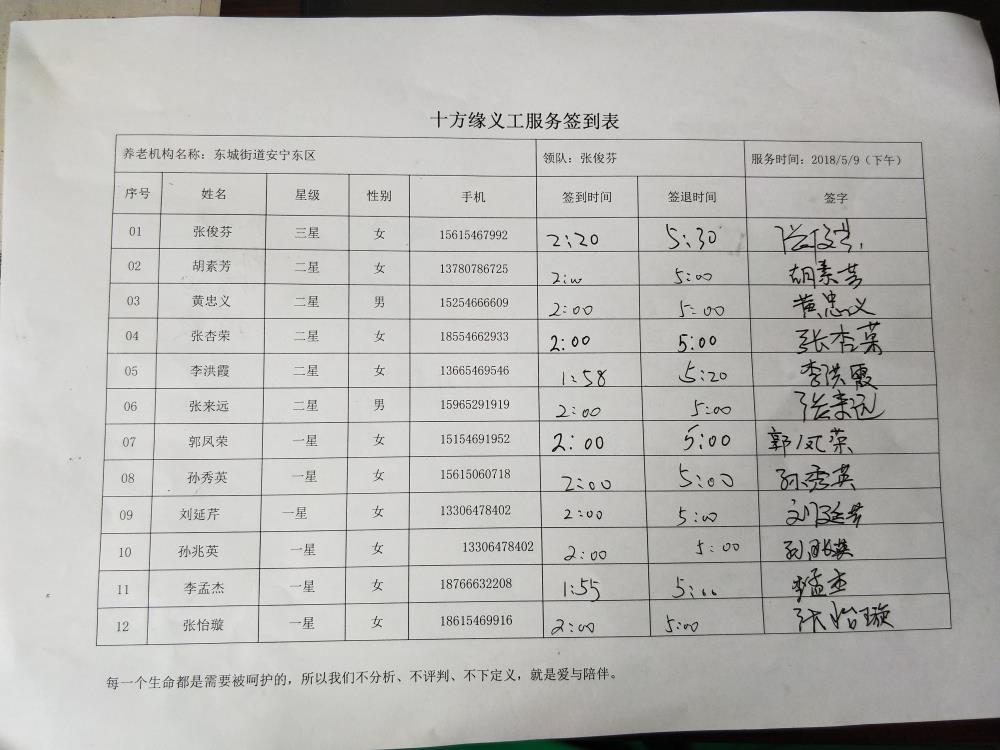 十方缘义工服务签到表
养老机构名称：东城街道安宁东区 领队：张俊芬 服务时间：2018/5/9（下午）
序号 姓名 星级 性别 手机 签到时间 签退时间 签字
01 张俊芬 三星 女 15615467992 2:20 5:30 张俊芬
02 胡素芳 二星 女 13780786725 2:00 5:00 胡素芳
03 黄忠义 二星 男 15254666609 2:00 5:00 黄忠义
04 张杏荣 二星 女 18554662933 2:00 5:00 张杏荣
05 李洪霞 二星 女 13665469546 1:58 5:20 李洪霞
06 张来远 二星 男 15965291919 2:00 5:00 张来远
07 郭凤荣 一星 女 15154691952 2:00 5:00 郭凤荣
08 孙秀英 一星 女 15615060718 2:00 5:00 孙秀英
09 刘延芹 一星 女 13306478402 2:00 5:00 刘延芹
10 孙兆英 一星 女 13306478402 2:00 5:00 孙兆英
11 李孟杰 一星 女 18766632208 1:55 5:00 李孟杰
12 张怡璇 一星 女 18615469916 2:00 5:00 张怡璇
每一个生命都是需要被呵护的，所以我们不分析、不评判、不下定义，就是爱与陪伴。